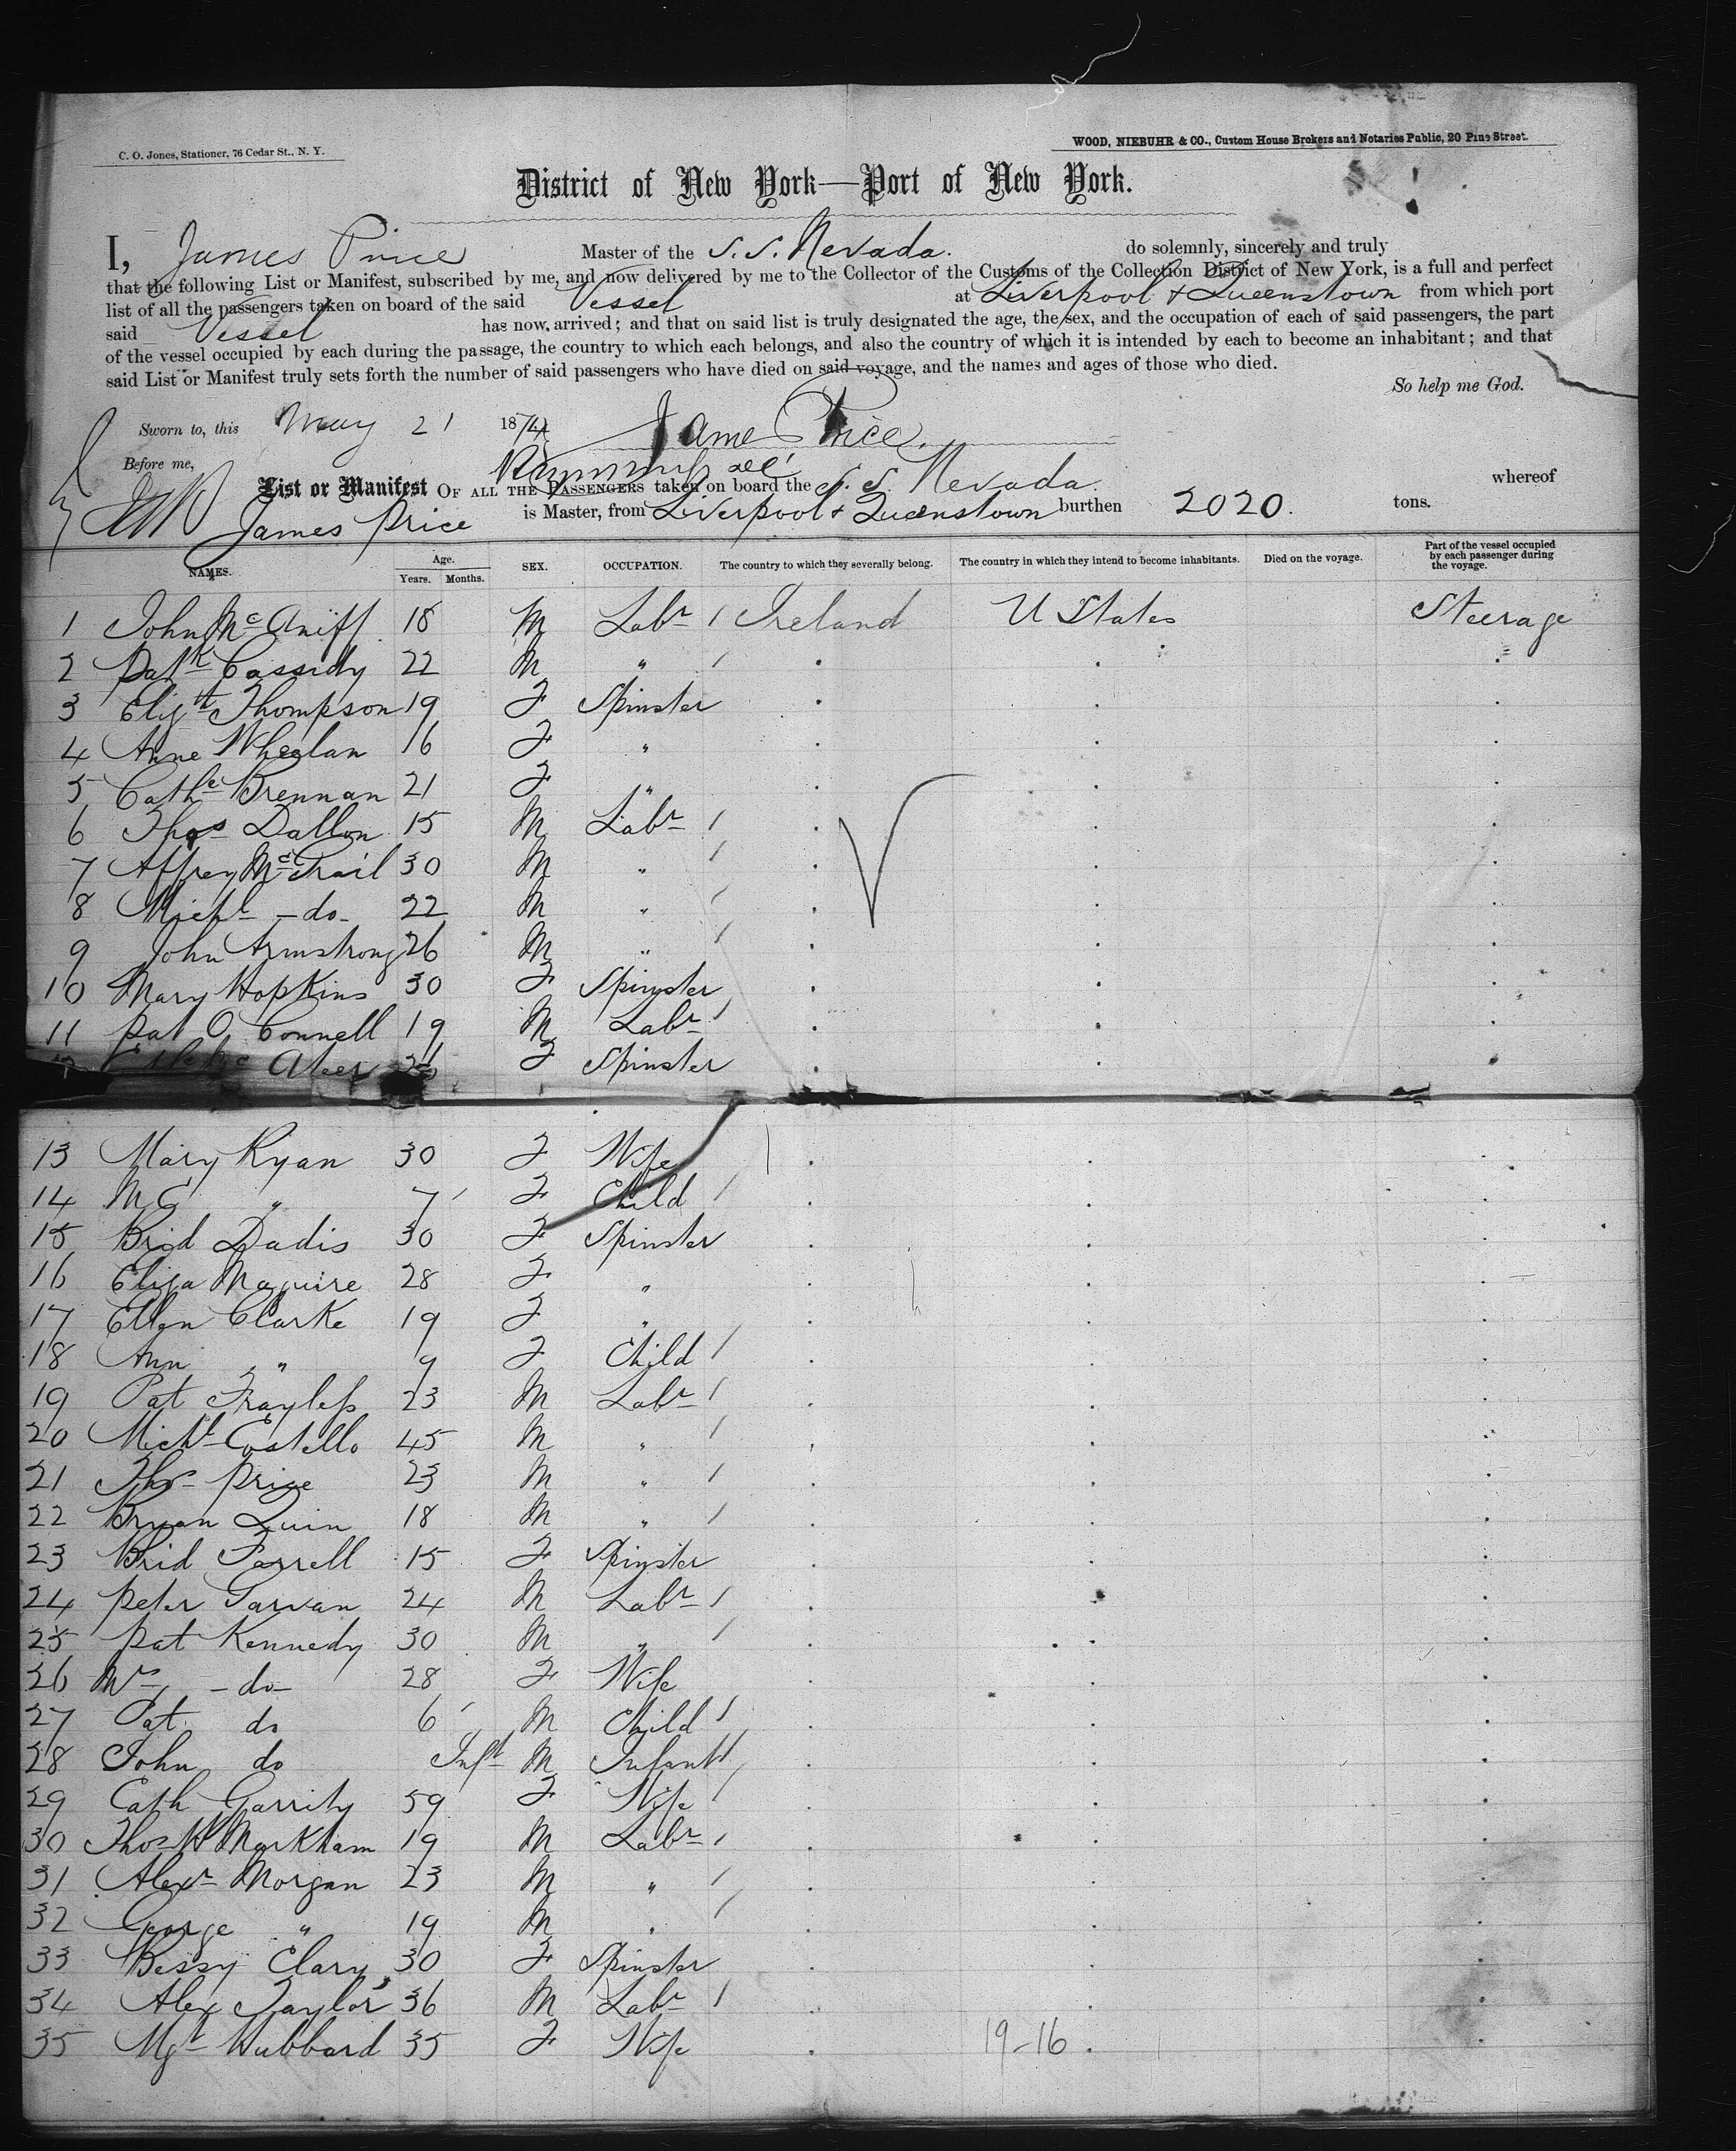 C. O. Jones, Stationer, 76 Cedar St., N. Y.
WOOD, NIEBUHR & CO., Custom House Brokers and Notaries Public, 20 Pine Street.
District of New York—Port of New York.
I, James Price Master of the S. S. Nevada. do solemnly, sincerely and truly
that the following List or Manifest, subscribed by me, and now delivered by me to the Collector of the Customs of the Collection District of New York, is a full and perfect
list of all the passengers taken on board of the said Vessel at Liverpool & Queenstown from which port
said Vessel has now arrived; and that on said list is truly designated the age, the sex, and the occupation of each of said passengers, the part
of the vessel occupied by each during the passage, the country to which each belongs, and also the country of which it is intended by each to become an inhabitant; and that
said List or Manifest truly sets forth the number of said passengers who have died on said voyage, and the names and ages of those who died.
So help me God.
Sworn to, this May 21 1874 Jame Price.
Before me,
List or Manifest OF ALL THE PASSENGERS taken on board the S. S. Nevada. whereof
James Price is Master, from Liverpool & Queenstown burthen 2020. tons.
NAMES. Age. Years. Months. SEX. OCCUPATION. The country to which they severally belong. The country in which they intend to become inhabitants. Died on the voyage. Part of the vessel occupied by each passenger during the voyage.
1 John McAniff 18 M Labr Ireland U States Steerage
2 Patk Cassidy 22 M "
3 Elizth Thompson 19 F Spinster
4 Anne Wheelan 16 F "
5 Cathe Brennan 21 F "
6 Thos Dallon 15 M Labr
7 Affrey McTrail 30 M "
8 Michl - do - 22 M "
9 John Armstrong 26 M "
10 Mary Hopkins 30 F Spinster
11 Pat O Connell 19 M Labr
Ateer F Spinster
13 Mary Ryan 30 F Wife
14 M C " 7 F Child
15 Brid Dadis 30 F Spinster
16 Eliza Maguire 28 F "
17 Ellen Clarke 19 F "
18 Ann " 9 F Child
19 Pat Frayless 23 M Labr
20 Michl Costello 45 M "
21 Thos Price 23 M "
22 Bryan Quin 18 M "
23 Brid Farrell 15 F Spinster
24 Peter Garvan 24 M Labr
25 Pat Kennedy 30 M "
26 Mrs - do - 28 F Wife
27 Pat do 6 M Child
28 John do Inft M Infant
29 Cath Garrity 59 F Wife
30 Thos H Markham 19 M Labr
31 Alexr Morgan 23 M "
32 George " 19 M "
33 Bessy Clary 30 F Spinster
34 Alex Taylor 36 M Labr
35 Mgt Hubbard 35 F Wife 19-16